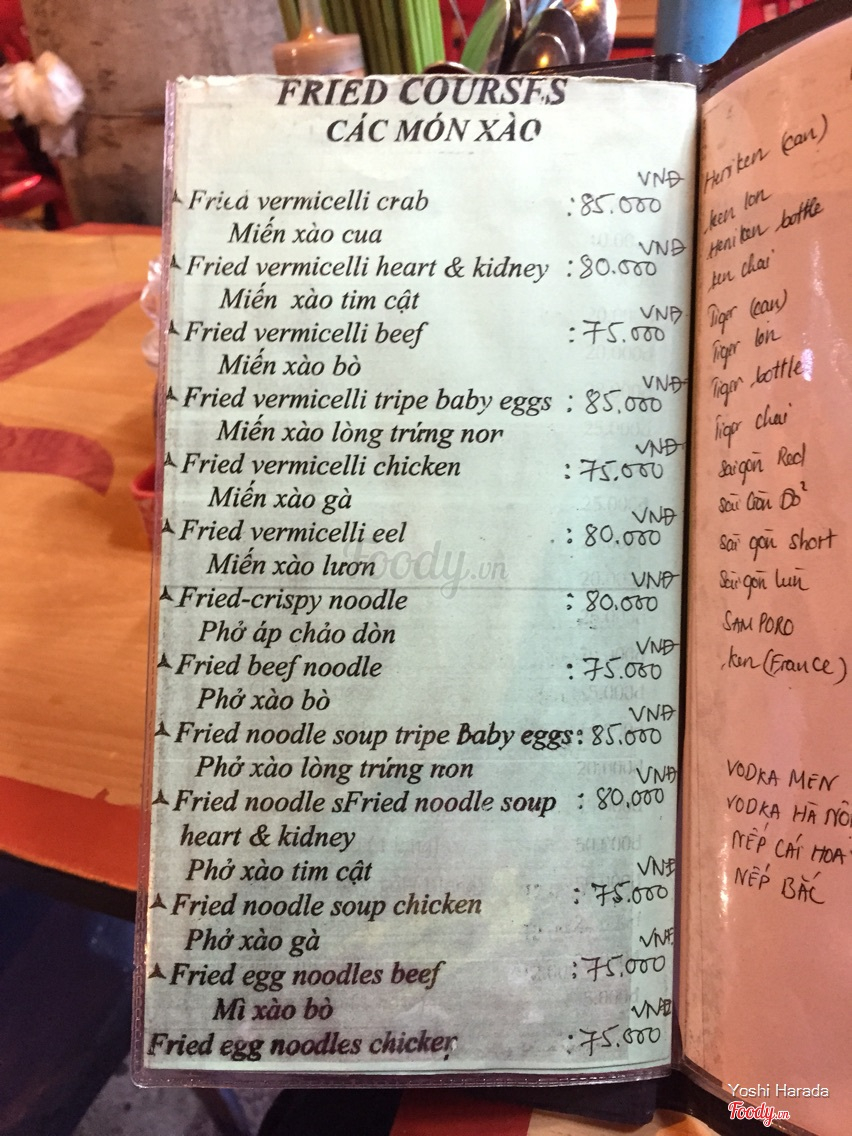 FRIED COURSES
CÁC MÓN XÀO
VNĐ
Fried vermicelli crab : 85.000
Miến xào cua
VNĐ
Fried vermicelli heart & kidney : 80.000
Miến xào tim cật
VNĐ
Fried vermicelli beef : 75.000
Miến xào bò
VNĐ
Fried vermicelli tripe baby eggs : 85.000
Miến xào lòng trứng non
VNĐ
Fried vermicelli chicken : 75.000
Miến xào gà
VNĐ
Fried vermicelli eel : 80.000
Miến xào lươn
VNĐ
Fried-crispy noodle : 80.000
Phở áp chảo dòn
VNĐ
Fried beef noodle : 75.000
Phở xào bò
VNĐ
Fried noodle soup tripe Baby eggs : 85.000
Phở xào lòng trứng non
VNĐ
Fried noodle sFried noodle soup : 80.000
heart & kidney
Phở xào tim cật
VNĐ
Fried noodle soup chicken : 75.000
Phở xào gà
VNĐ
Fried egg noodles beef : 75.000
Mì xào bò
VNĐ
Fried egg noodles chicker : 75.000
Heniken (can)
keen lon
Heniken bottle
ken chai
Tiger (can)
Tiger lon
Tiger bottle
Tiger chai
Saigon Red
Sài Gòn Đỏ
Sài gòn short
Sài gòn lùn
SAMPORO
ken (France)
VODKA MEN
VODKA HÀ NỘI
NẾP CÁI HOA
NẾP BẮC
Foody.vn
Yoshi Harada
Foody.vn